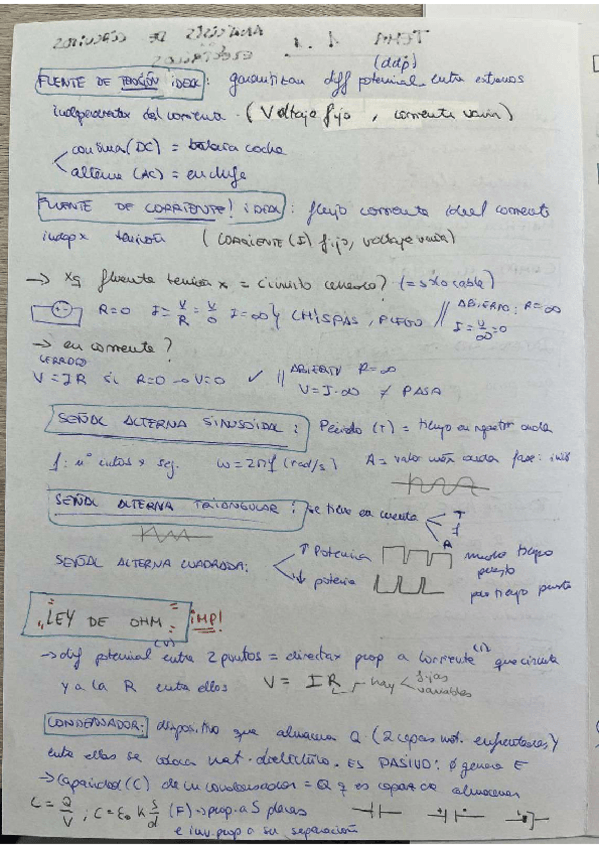 TEMA 1.1. ANÁLISIS DE CIRCUITOS
(ddp)
FUENTE DE TENSIÓN IDEAL: garantizan diff potencial entre extremos
independientes del corriente. (Voltaje fijo, corriente varía)
continua (DC) = batería coche
alterna (AC) = enchufe
FUENTE DE CORRIENTE! IDEAL: flujo corriente ideal corriente
indep x tensión (CORRIENTE (I) fijo, voltaje varía)
→ xq fuente tension x = circuito cerrado? (= sólo cable)
R=0 I=V/R=V/0 I=∞ y CHISPAS, FUEGO // ABIERTO: R=∞
I=V/∞=0
→ en corriente?
CERRADO
V=IR si R=0 → V=0 ✓ // ABIERTO R=∞
V=I·∞ ≠ PASA
SEÑAL ALTERNA SINUSOIDAL: Periodo (T) = tiempo en repetir onda
f: nº ciclos x seg. ω=2πf (rad/s) A= valor máx onda fase: inic
SEÑAL ALTERNA TRIANGULAR: se tiene en cuenta T
f
A
SEÑAL ALTERNA CUADRADA: ↑ Potencia mucho tiempo
puesto
↓ potencia poco tiempo puesto
"LEY DE OHM" ¡IMP!
(V) (I)
→ dif potencial entre 2 puntos = directax prop a corriente que circula
y a la R entre ellos V = IR → hay fijas
variables
CONDENSADOR: dispositivo que almacena Q (2 capas mat. enfrentadas) y
entre ellas se coloca mat. dieléctrico. ES PASIVO: ∅ genera E
→ Capacidad (C) de un condensador = Q q es capaz de almacenar
C=Q/V; C=ε₀ k S/d (F) → prop. a S placas
e inv. prop a su separación